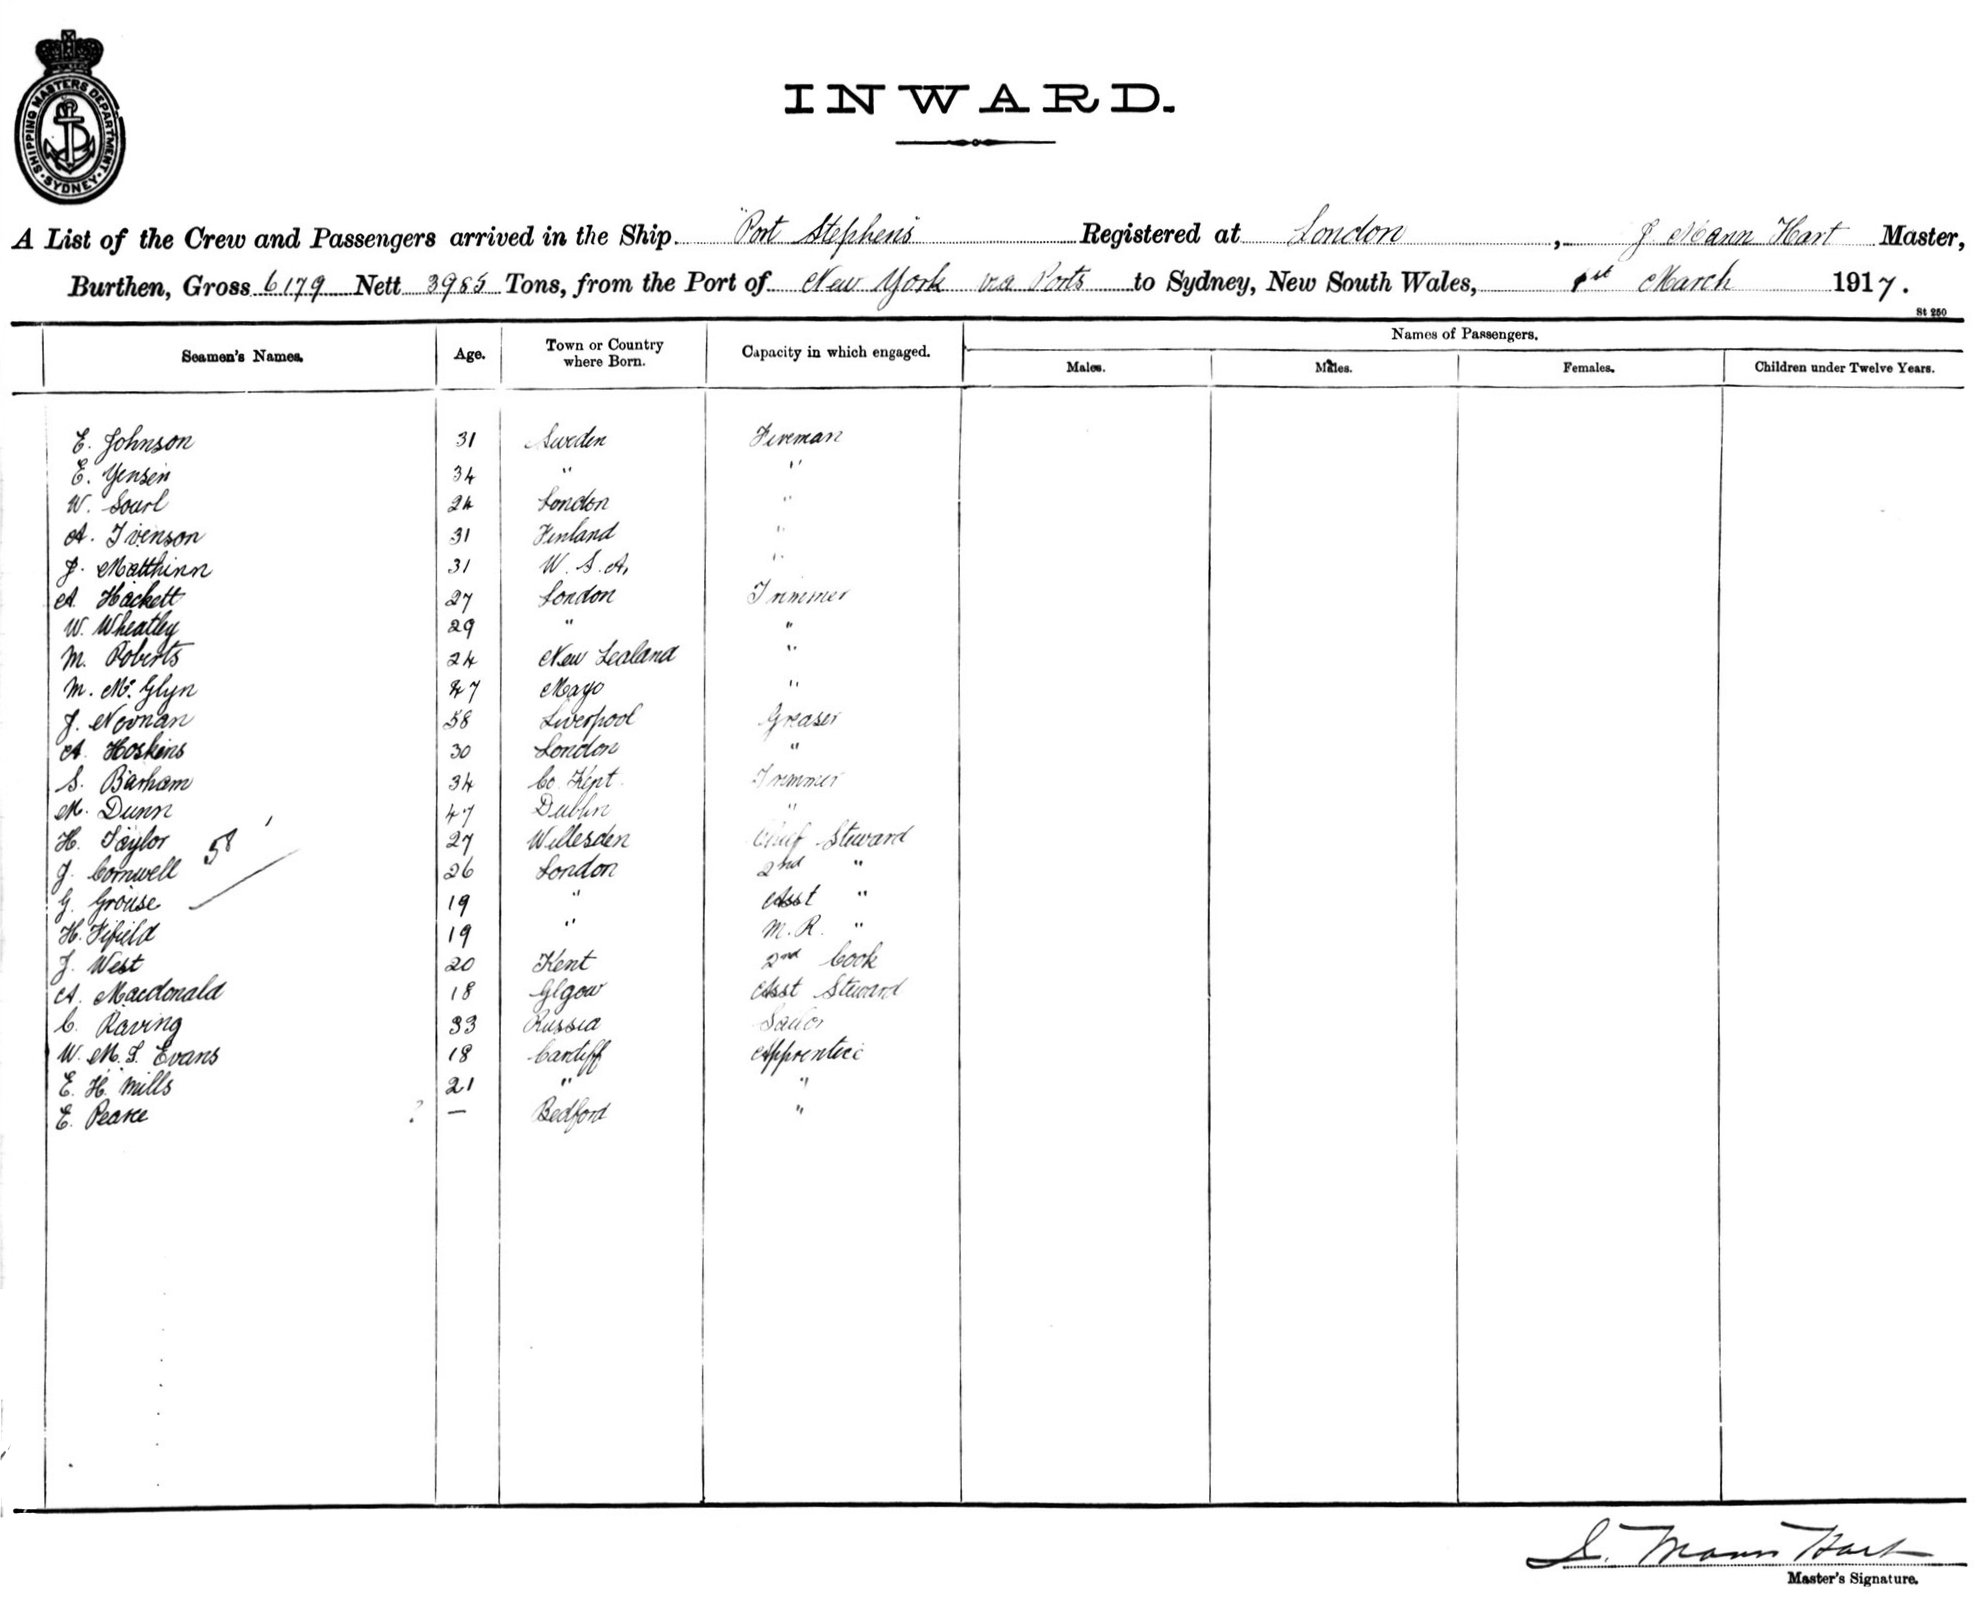 SHIPPING MASTERS DEPARTMENT. SYDNEY.
INWARD.
A List of the Crew and Passengers arrived in the Ship "Port Stephens" Registered at London, J Mann Hart Master,
Burthen, Gross 6179 Nett 3985 Tons, from the Port of New York via Ports to Sydney, New South Wales, 1st March 1917.
St 250
Seamen's Names. Age. Town or Country where Born. Capacity in which engaged. Names of Passengers.
Males. Males. Females. Children under Twelve Years.
E. Johnson 31 Sweden Fireman
E. Yensen 34 " "
W. Sourl 24 London "
A. Ivenson 31 Finland "
J. Matthinn 31 U.S.A. "
A. Hackett 27 London Trimmer
W. Wheatley 29 " "
M. Roberts 24 New Zealand "
M. Mc Glyn 47 Mayo "
J. Noonan 58 Liverpool Greaser
A. Hoskins 30 London "
S. Barham 34 Co. Kent. Trimmer
M. Dunn 47 Dublin "
H. Taylor 27 Willesden Chief Steward
58
J. Cornwell 26 London 2nd "
G. Grouse 19 " Asst "
H. Fifield 19 " M.R. "
J. West 20 Kent 2nd Cook
A. Macdonald 18 Glgow Asst Steward
C. Raving 33 Russia Sailor
W. M. L. Evans 18 Cardiff Apprentice
E. H. Mills 21 " "
E. Pearce ? — Bedford "
J. Mann Hart
Master's Signature.